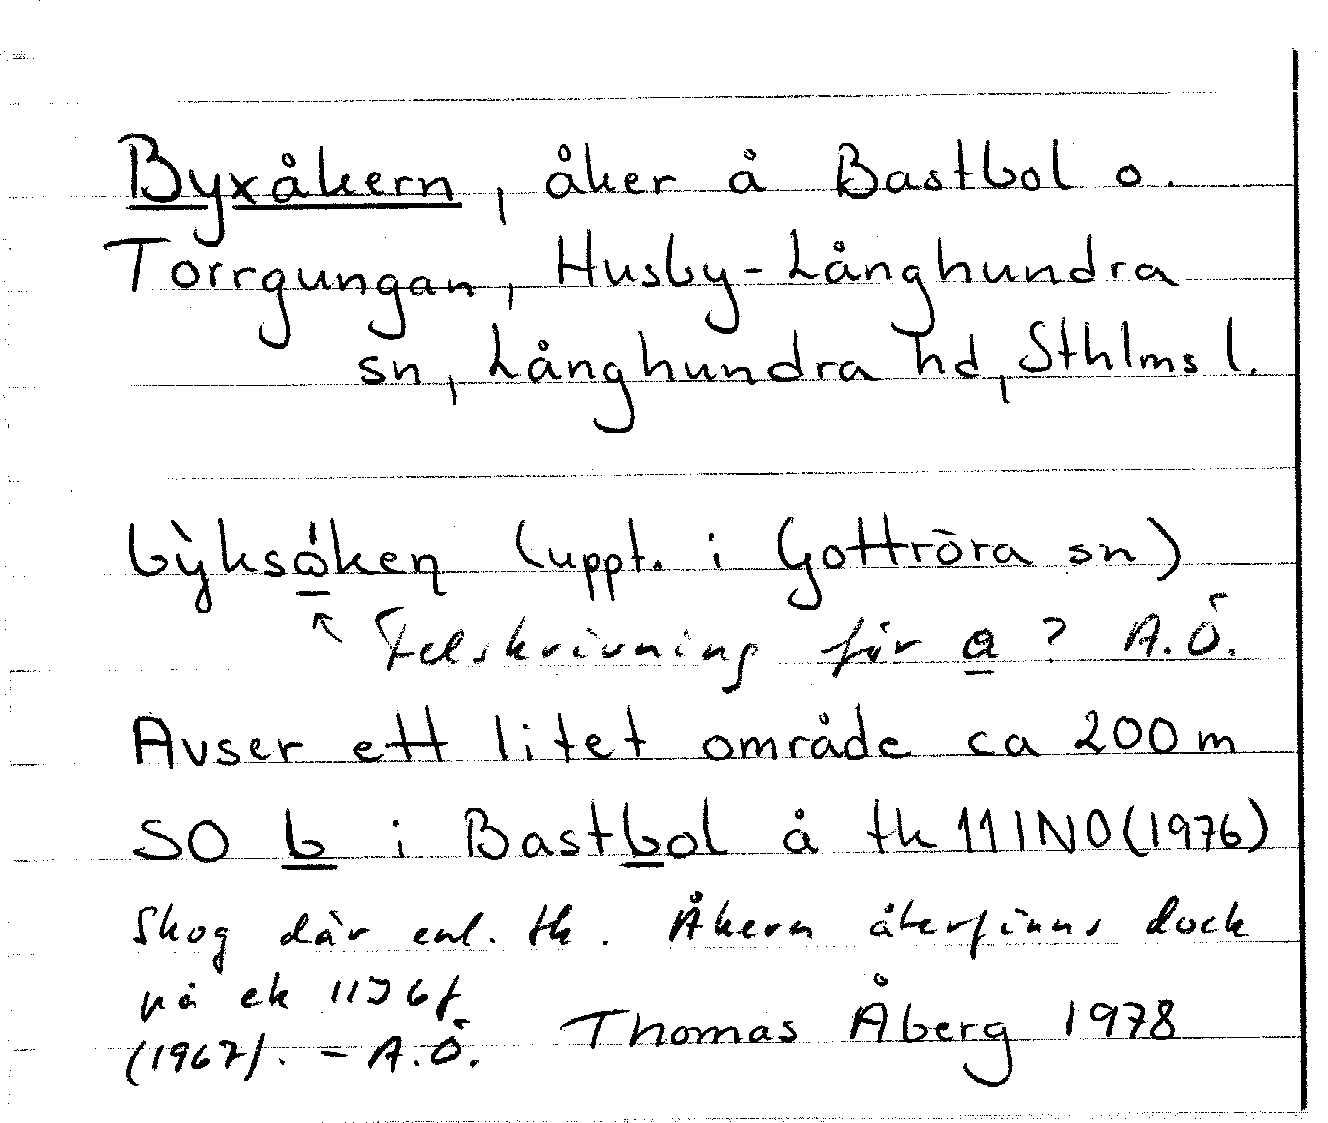 Byxåkern, åker å Bastbol o.
Torrgungan, Husby-Långhundra
sn, Långhundra hd, Sthlms l.
bỳksåkeṇ (uppt. i Gottröra sn)
↖ Felskrivning för a ? A.Ö.
Avser ett litet område ca 200 m
SO b i Bastbol å tk 11 I NO (1976)
Skog där enl. tk. Åkern återfinns dock
på ek 11J 6f
(1967). – A.Ö. Thomas Åberg 1978